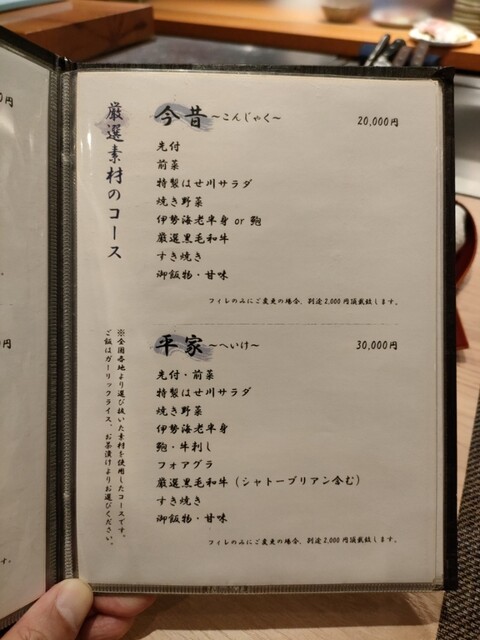 厳選素材のコース
※全国各地より選び抜いた素材を使用したコースです。
ご飯はガーリックライス、お茶漬けよりお選びください。
今昔 ~こんじゃく~ 20,000円
先付
前菜
特製はせ川サラダ
焼き野菜
伊勢海老半身 or 鮑
厳選黒毛和牛
すき焼き
御飯物・甘味
フィレのみにご変更の場合、別途2,000円頂戴致します。
平家 ~へいけ~ 30,000円
先付・前菜
特製はせ川サラダ
焼き野菜
伊勢海老半身
鮑・牛刺し
フォアグラ
厳選黒毛和牛(シャトーブリアン含む)
すき焼き
御飯物・甘味
フィレのみにご変更の場合、別途2,000円頂戴致します。